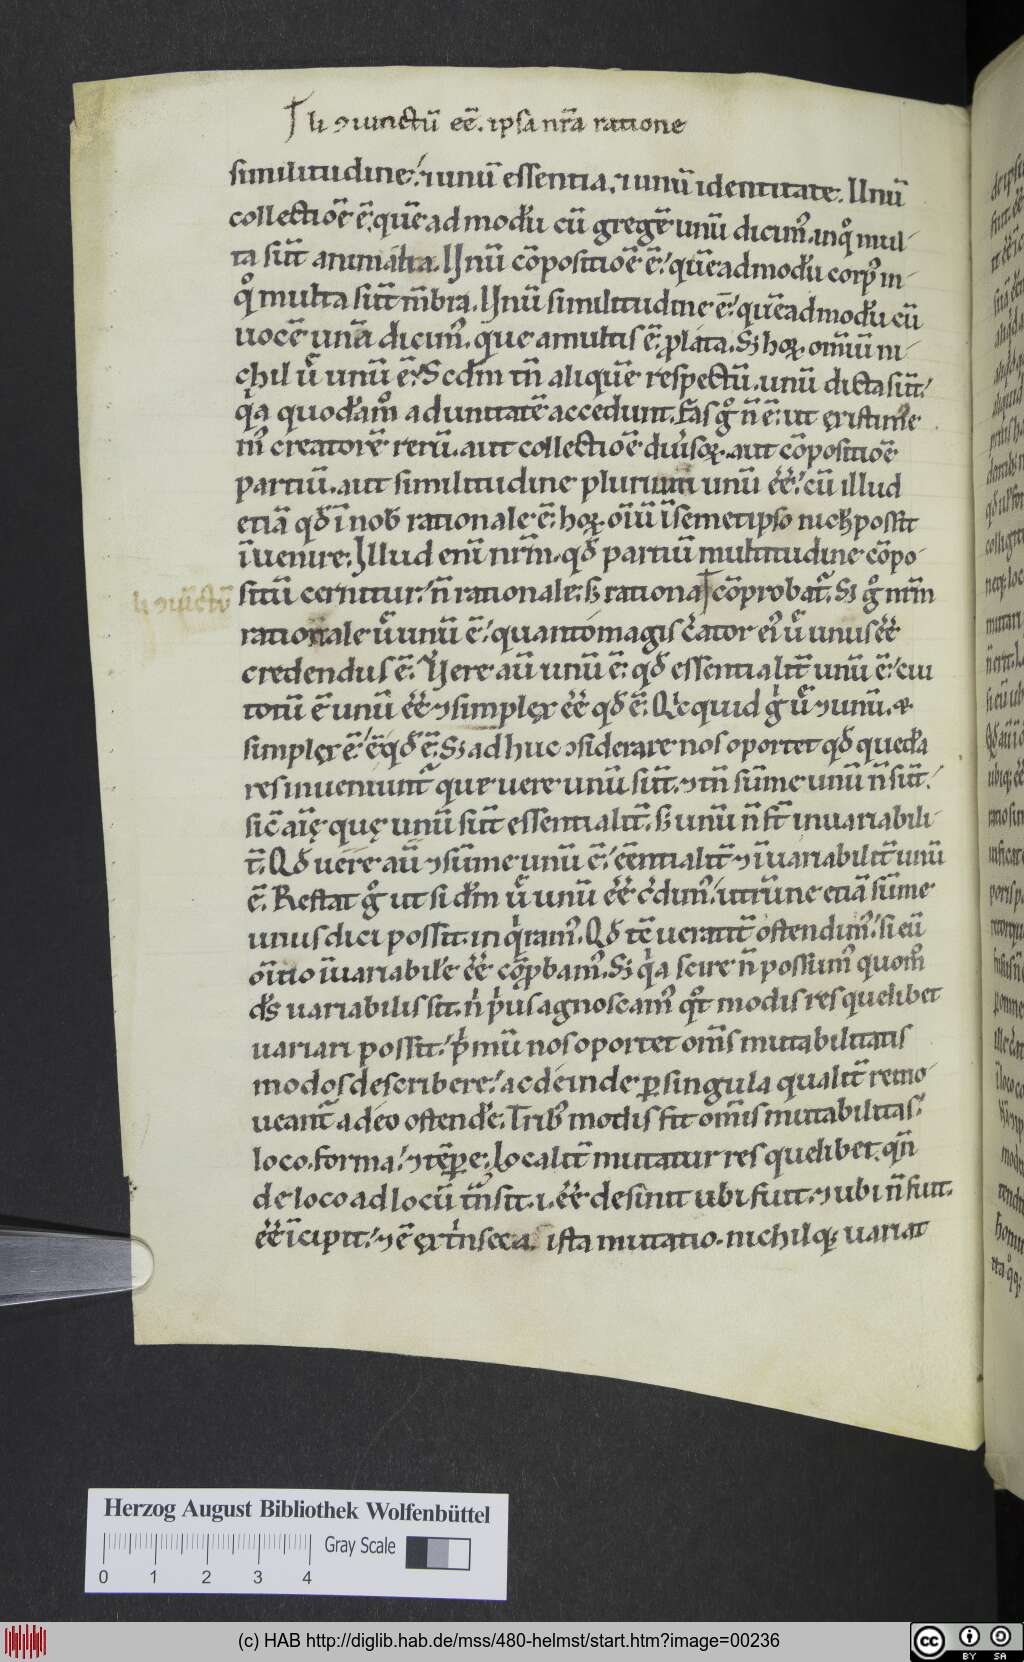 li ɔiunctū eē. ipsa nr̄a ratione
similitudine. ⁊ unū essentia, ⁊ unū identitate. Unū
collectiōe ē. quēadmodū cū gregē unū dicim᷒. in qͦ mul-
ta sūt animalia. Unū cōpositiōe ē. quēadmodū corp᷒ in
qͦ multa sūt mēbra. Unū similitudine ē. quēadmodū cū
uocē unā dicim᷒. que a multis ē plata. S; hoꝝ omiū ni-
chil uͤ unū ē. Scd̄m tn̄ aliquē respectū. unū dicta sūt.
qa quodāmͦ ad unitatē accedunt. Fas gͦ n̄ ē. ut ęxistime
m᷒ creatorē rerū. aut collectiōe diuisoꝝ. aut cōpositiōe
partiū. aut similitudine plurimū unū eē. cū illud
etiā qd̄ ī nob rationale ē. hoꝝ oīū ī semetipso nich possit
īuenire. Illud enī nr̄m. qd̄ partiū multitudine cōpo-
sitū cernitur. n̄ rationale. s; rationa cōprobat᷑. S; gͦ nr̄m
li ɔiūctū
rationale uͤ unū ē. quanto magis c̄ator ei᷒ uͤ unus eē
credendus ē. Vere aū unū ē. qd̄ essentialit̄ unū ē. cui
totū ē unū eē ⁊ simplęx eē qd̄ ē. Qͥcquid gͥ uͤ ⁊ unū. ⁊
simplęx ē. ē qd̄ ē. S; adhuc ɔsiderare nos oportet qd̄ quedā
res inueniunt᷑ que uere unū sūt. ⁊ tn̄ sūme unū n̄ sūt.
sic̄ aīę quę unū sūt essentialit̄. s; unū n̄ st̄ inuariabili
t̄. Qd̄ uere aū ⁊ sūme unū ē. eēntialit̄ ⁊ īuariabilit̄ unū
ē. Restat gͦ ut si dm̄ uͤ unū eē c̄dim᷒. utrū ne etiā sūme
unus dici possit. inqͥram᷒. Qd̄ tē ueracit̄ ostendim᷒. si eū
oīno īuariabile eē cōpbam᷒. S; qͥa scire n̄ possum᷒ quom̄
d̄s uariabilis sit. n̄ pͥus agnoscam᷒ qͦt modis res quelibet
uariari possit. pͥmū nos oportet omīs mutabilitatis
modos describere. ac deinde ꝑ singula qualit̄ remo-
ueant᷑ a deo ostendē. Trib᷒ modis fit omīs mutabilitas.
loco. forma. ⁊ tēꝑe. Localit̄ mutatur res quelibet. qn̄
de loco ad locū tn̄sit. i. eē desinit ubi fuit. ⁊ ubi n̄ fuit.
eē īcipit. ⁊ ē ęxtͥnseca ista mutatio. nichilqꝫ uariat
Herzog August Bibliothek Wolfenbüttel
Gray Scale
0 1 2 3 4
(c) HAB http://diglib.hab.de/mss/480-helmst/start.htm?image=00236
cc BY SA